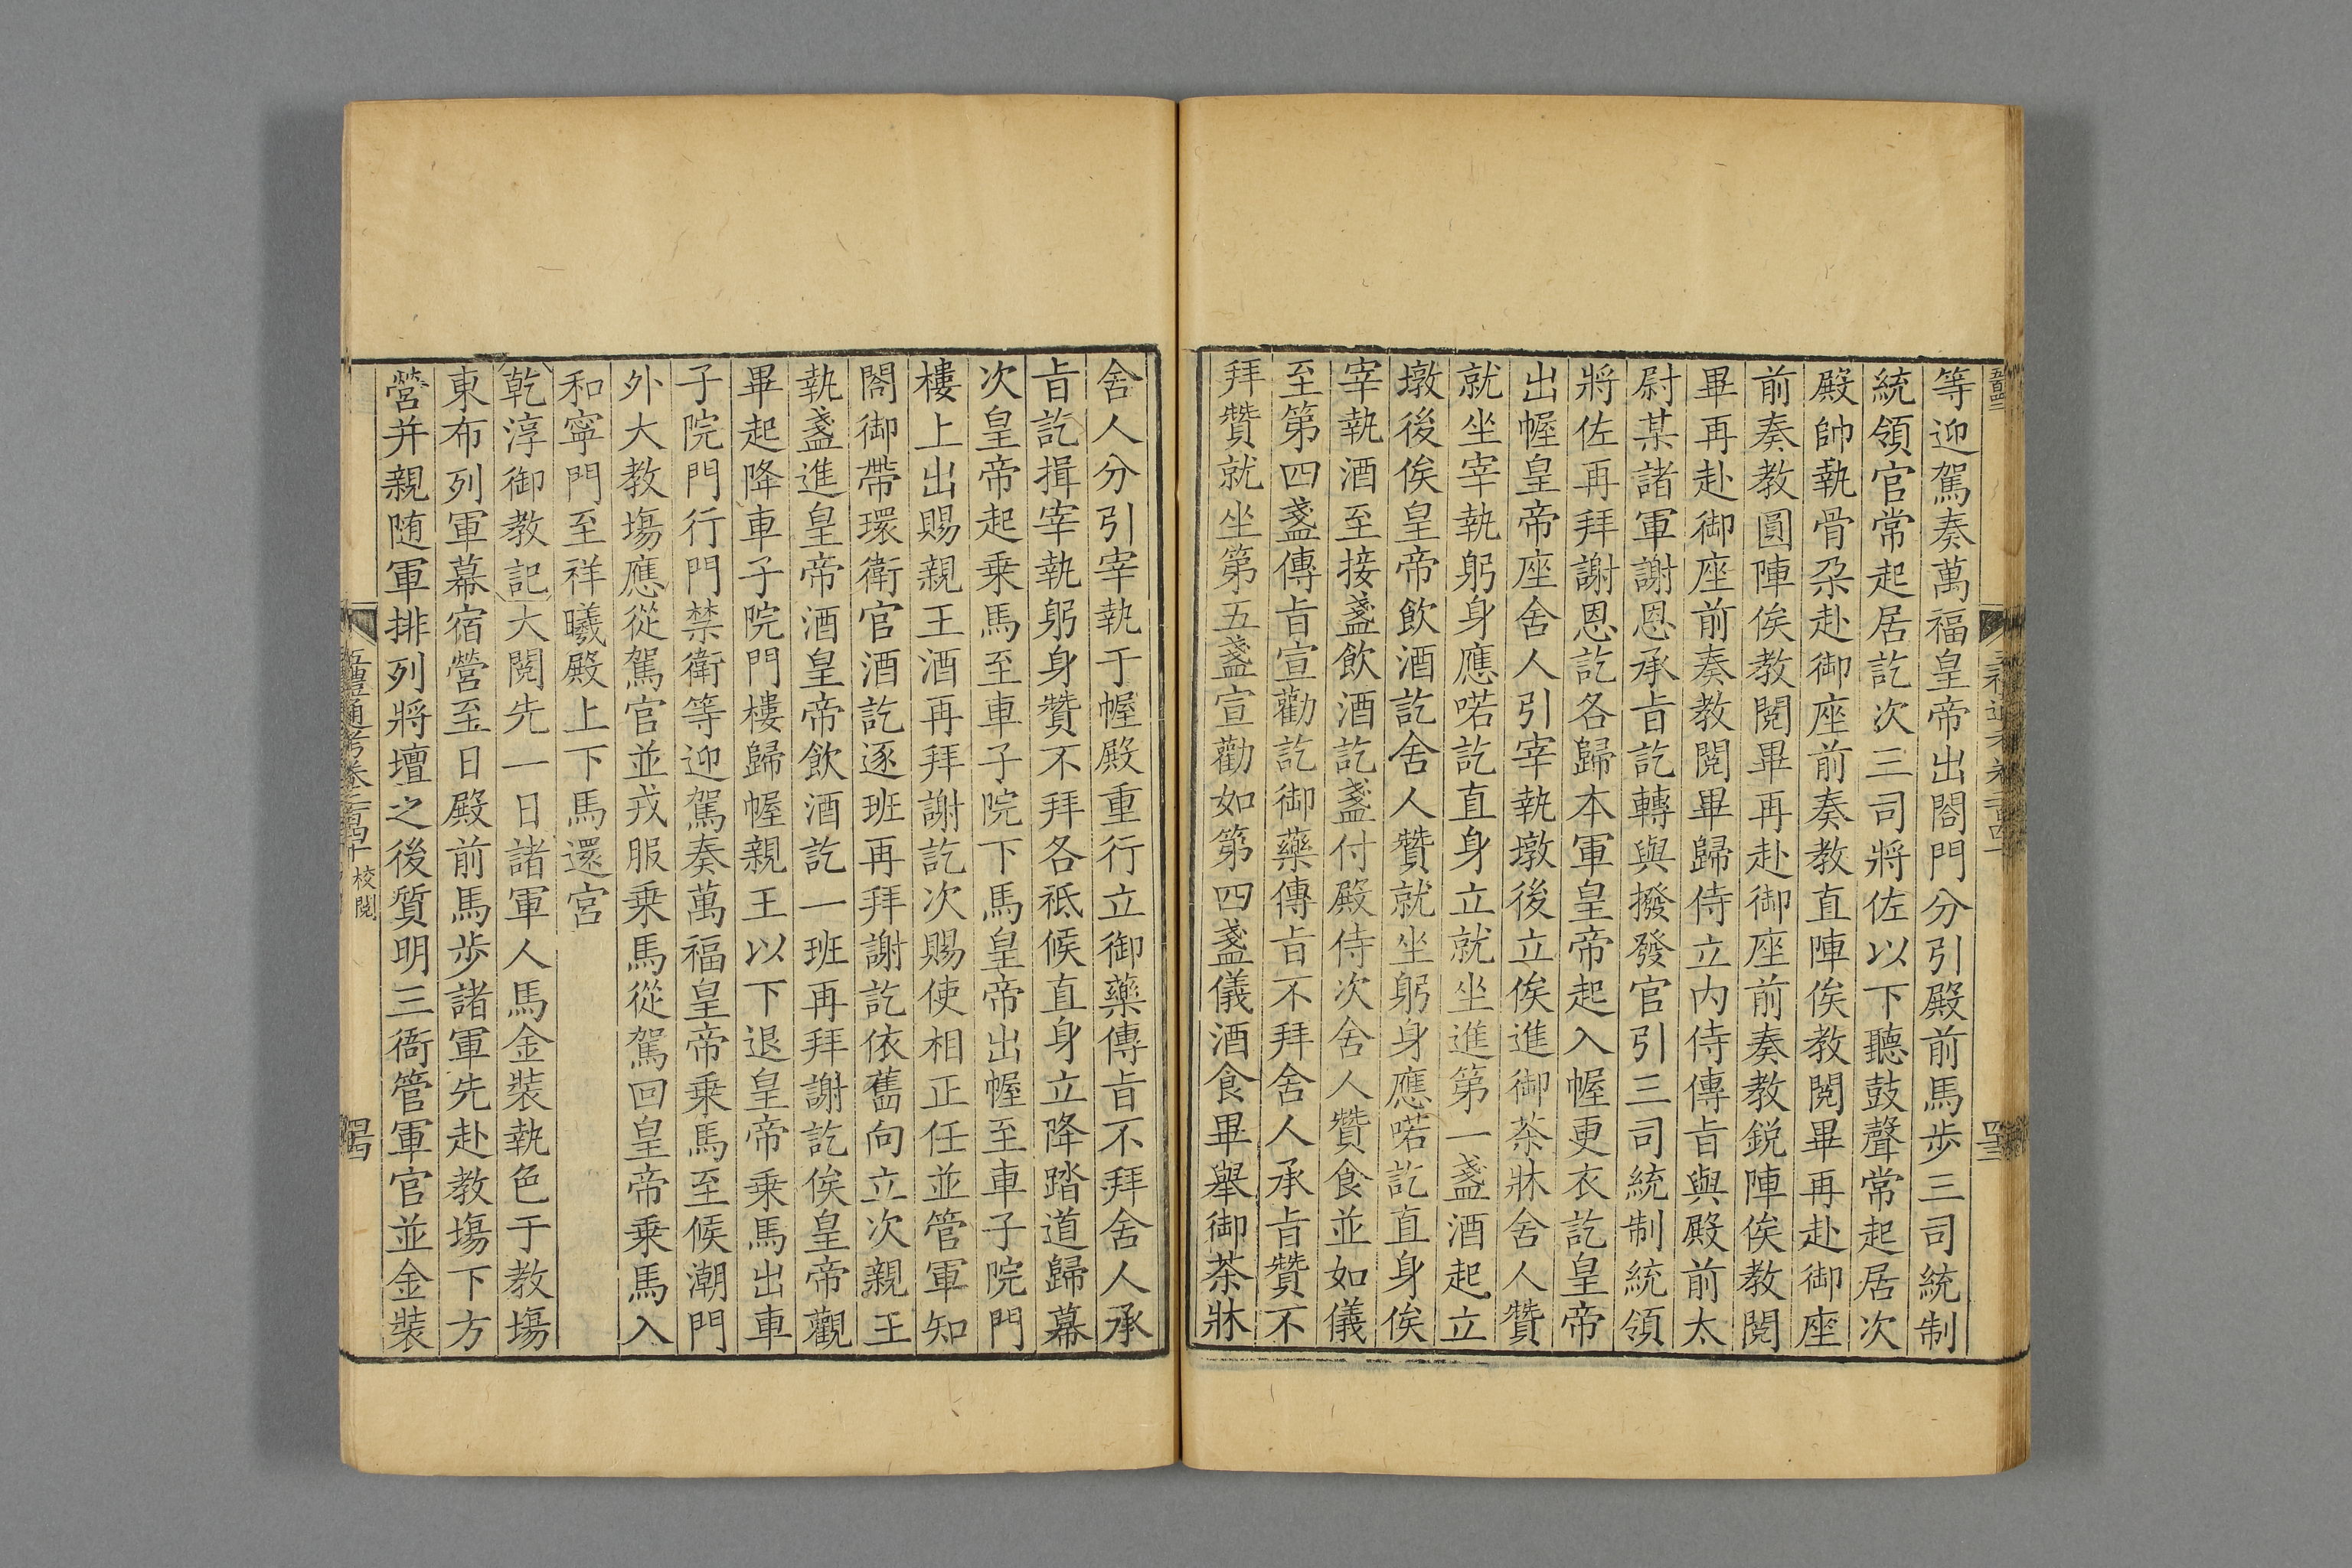 等迎駕奏萬福皇帝出閤門分引殿前馬步三司統制
統領官常起居訖次三司將佐以下聽鼓聲常起居次
殿帥執骨朶赴御座前奏教直陣俟教閱畢再赴御座
前奏教圓陣俟教閱畢再赴御座前奏教銳陣俟教閱
畢再赴御座前奏教閱畢歸侍立內侍傳㫖與殿前太
尉某諸軍謝恩承㫖訖轉與撥發官引三司統制統領
將佐再拜謝恩訖各歸本軍皇帝起入幄更衣訖皇帝
出幄皇帝座舍人引宰執墩後立俟進御茶牀舍人贊
就坐宰執躬身應喏訖直身立就坐進第一盞酒起立
墩後俟皇帝飲酒訖舍人贊就坐躬身應喏訖直身俟
宰執酒至接盞飲酒訖盞付殿侍次舍人贊食並如儀
至第四盞傳㫖宣勸訖御藥傳㫖不拜舍人承㫖贊不
拜贊就坐第五盞宣勸如第四盞儀酒食畢舉御茶牀
舍人分引宰執于幄殿重行立御藥傳㫖不拜舍人承
㫖訖揖宰執躬身贊不拜各祗候直身立降踏道歸幕
次皇帝起乗馬至車子院下馬皇帝出幄至車子院門
樓上出賜親王酒再拜謝訖次賜使相正任並管軍知
閤御帶環衛官酒訖逐班再拜謝訖依舊向立次親王
執盞進皇帝酒皇帝飲酒訖一班再拜謝訖俟皇帝觀
畢起降車子院門樓歸幄親王以下退皇帝乗馬出車
子院門行門禁衛等迎駕奏萬福皇帝乗馬至候潮門
外大教塲應從駕官並戎服乗馬從駕回皇帝乗馬入
和寧門至祥曦殿上下馬還宮
乾淳御教記大閱先一日諸軍人馬金裝執色于教塲
東布列軍幕宿營至日殿前馬步諸軍先赴教塲下方
營并親随軍排列將壇之後質明三衙管軍官並金裝
校閱